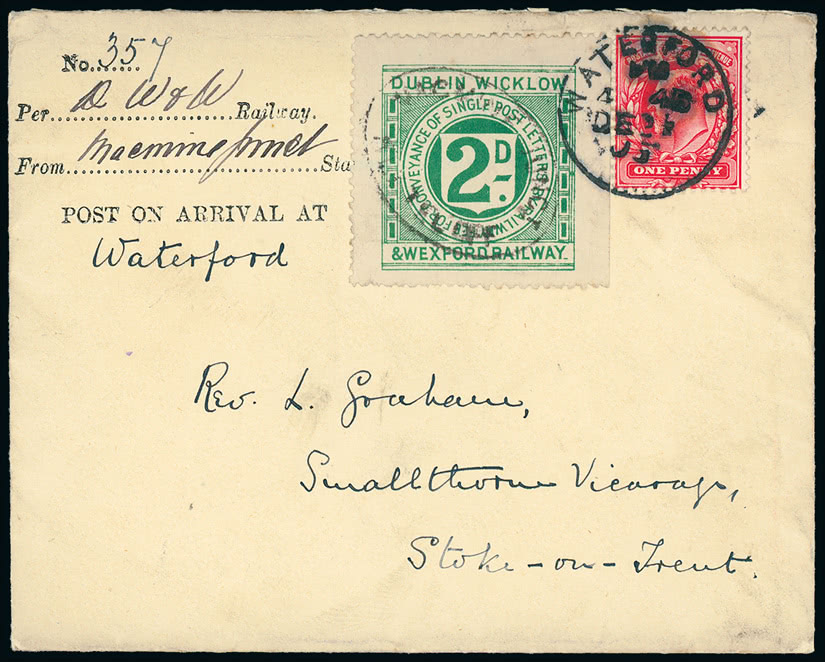 No. 357
Per D W & W Railway.
From Macmine Junct Sta
POST ON ARRIVAL AT
Waterford
DUBLIN WICKLOW
CONVEYANCE OF SINGLE POST LETTERS BY RAILWAY
2D.
& WEXFORD RAILWAY.
WATERFORD
DE
ONE PENNY
Rev. L. Graham,
Smallthorne Vicarage,
Stoke-on-Trent.